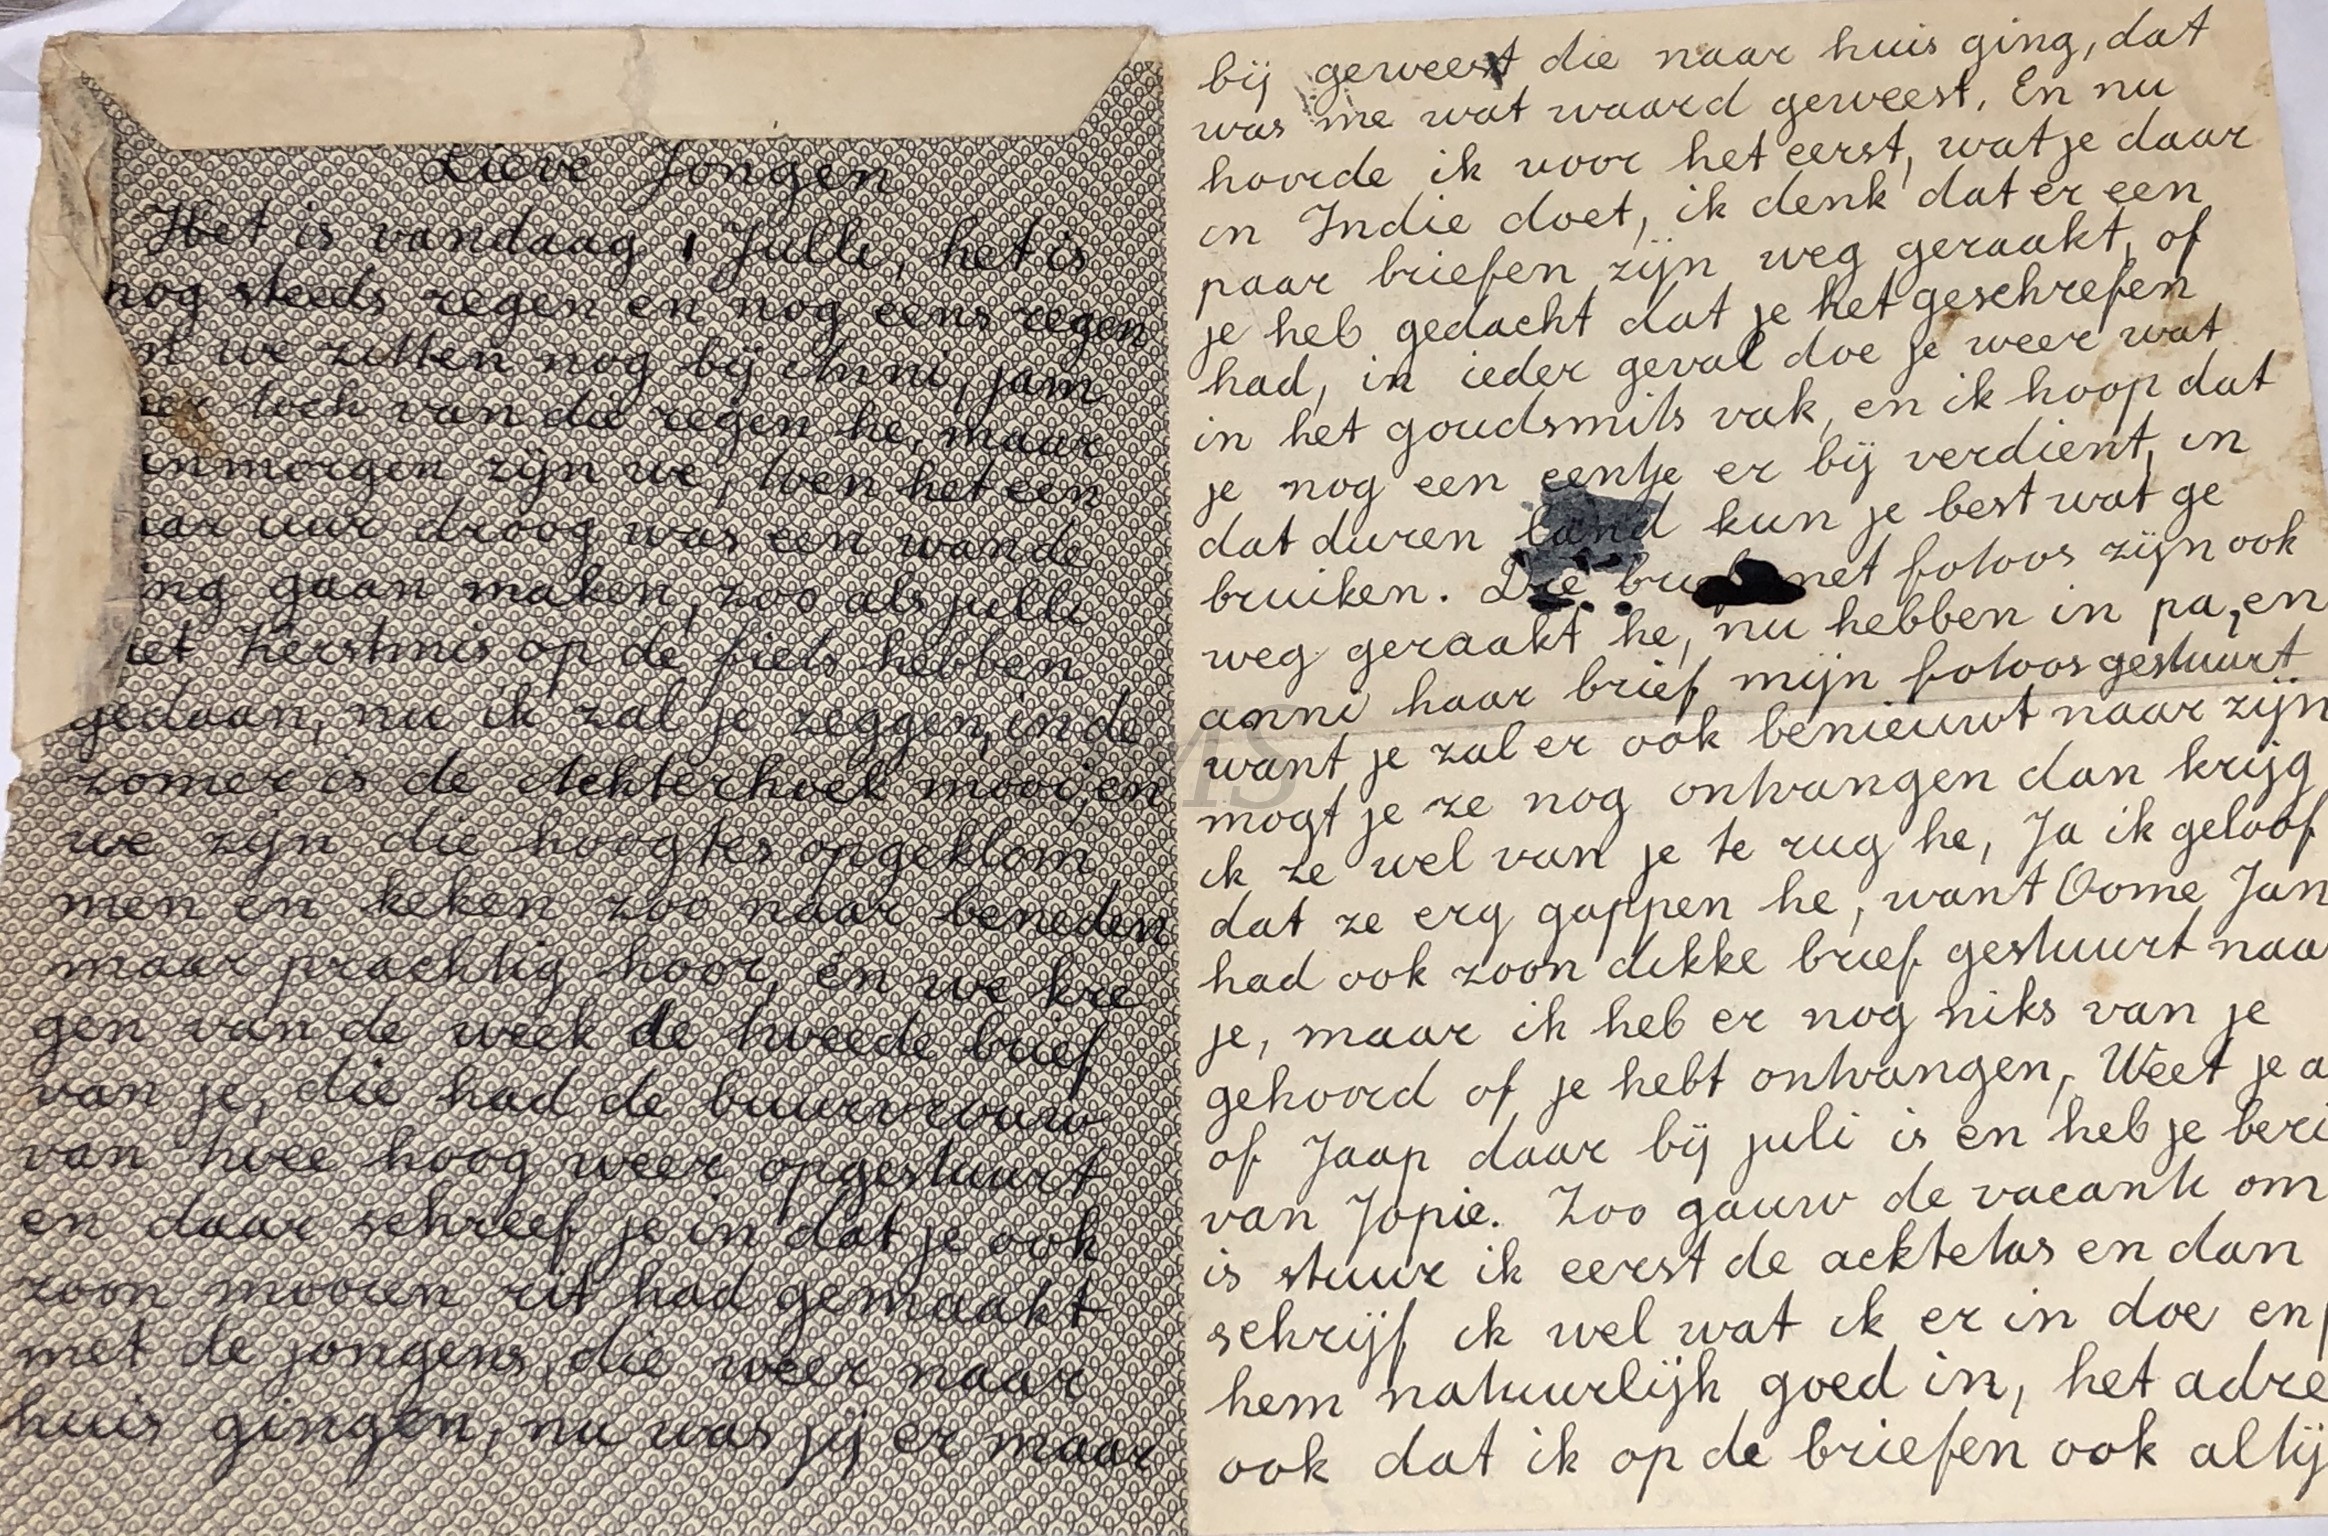 Lieve Jongen
Het is vandaag 1 Julli, het is
nog steeds regen en nog eens regen
n we zitten nog bij Anni, jam
mer toch van die regen he, maar
anmorgen zijn we, toen het een
aar uur droog was een wande
ing gaan maken, zoo als julli
iet Kerstmis op de fiets hebben
gedaan, nu ik zal je zeggen, in de
zomer is de Achterhoek mooi, en
we zijn die hoogtes opgeklom
men en keken zoo naar beneden
maar prachtig hoor, en we kre
gen van de week de tweede brief
van je, die had de buurvrouw
van twee hoog weer opgestuurt
en daar schreef je in dat je ook
zoon mooien rit had gemaakt
met de jongens, die weer naar
huis gingen, nu was jij er maar
bij geweest die naar huis ging, dat
was me wat waard geweest. En nu
hoorde ik voor het eerst, wat je daar
in Indie doet, ik denk dat er een
paar briefen zijn weg geraakt, of
je heb gedacht dat je het geschrefen
had, in ieder geval doe je weer wat
in het goudsmits vak, en ik hoop dat
je nog een eentje er bij verdient, in
dat duren land kun je best wat ge
bruiken. Die brief met fotoos zijn ook
weg geraakt he, nu hebben in pa, en
anni haar brief mijn fotoos gestuurt
want je zal er ook benieuwt naar zijn
mogt je ze nog ontvangen dan krijg
ik ze wel van je te rug he, Ja ik geloof
dat ze erg gappen he, want Oome Jan
had ook zoon dikke brief gestuurt naa
je, maar ik heb er nog niks van je
gehoord of je hebt ontvangen, Weet je a
of Jaap daar bij juli is en heb je beri
van Jopie. Zoo gauw de vacantie om
is stuur ik eerst de acktetas en dan
schrijf ik wel wat ik er in doe en p
hem natuurlijk goed in, het adre
ook dat ik op de briefen ook altij